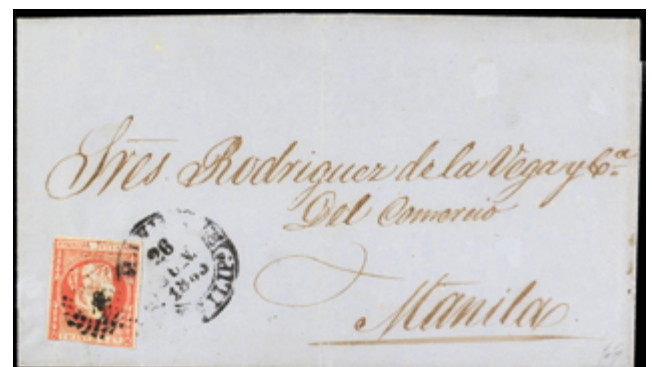 Sres Rodriguez de la Vega y Ca
Del Comercio
Manila
26
JUN.